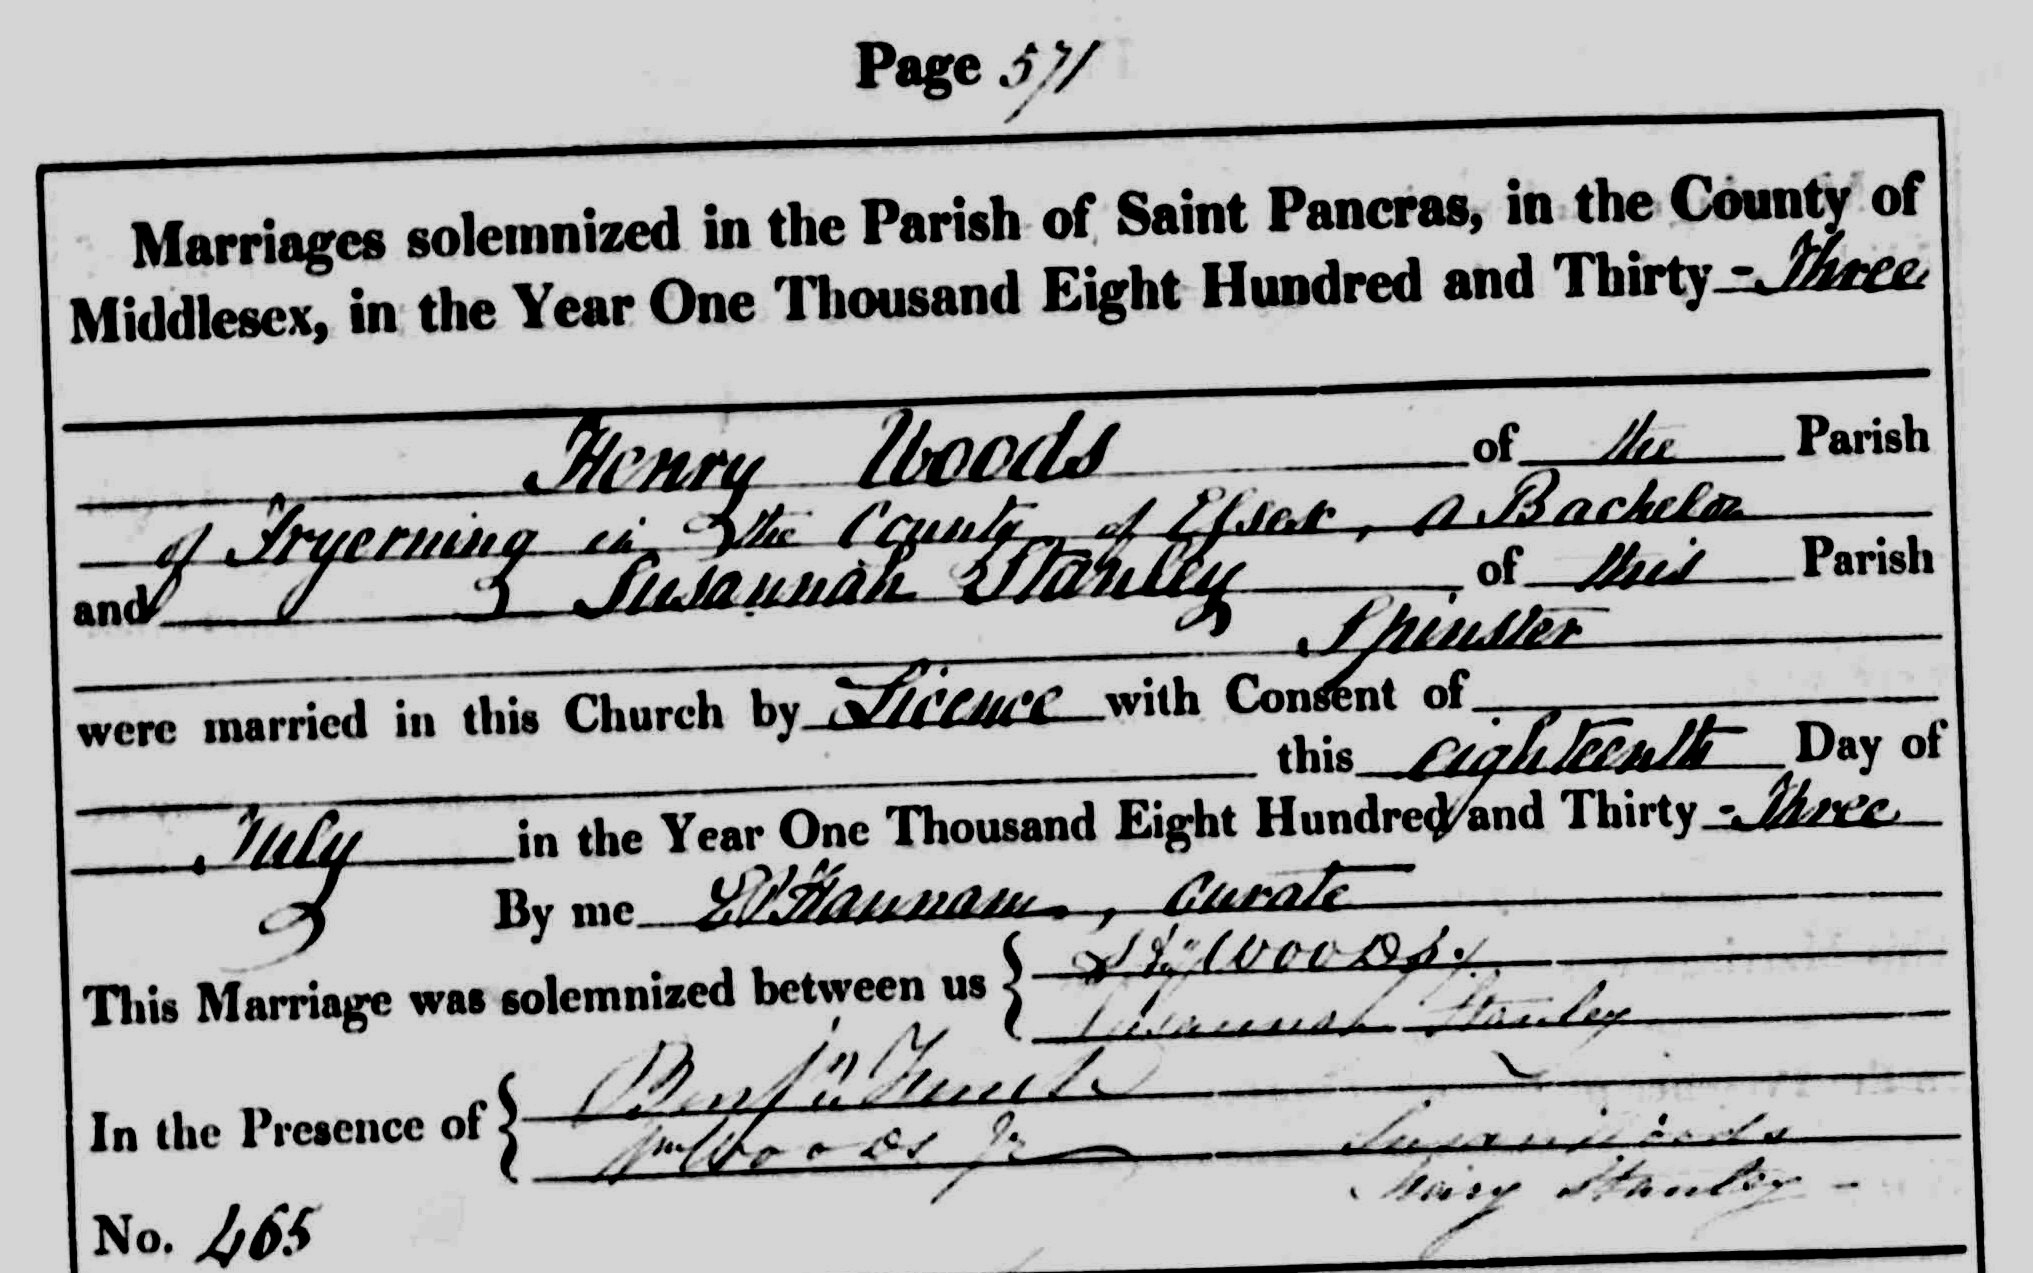 Page 571
Marriages solemnized in the Parish of Saint Pancras, in the County of
Middlesex, in the Year One Thousand Eight Hundred and Thirty - Three
Henry Woods of the Parish
of Fryerning in the County of Essex, a Bachelor
and Susannah Stanley of this Parish
Spinster
were married in this Church by Licence with Consent of
this eighteenth Day of
July in the Year One Thousand Eight Hundred and Thirty - Three
By me Hannam, Curate
This Marriage was solemnized between us { Hy Woods.
Susannah Stanley
In the Presence of { Benjn
Wm Woods Jr Susan Woods
Mary Stanley
No. 465